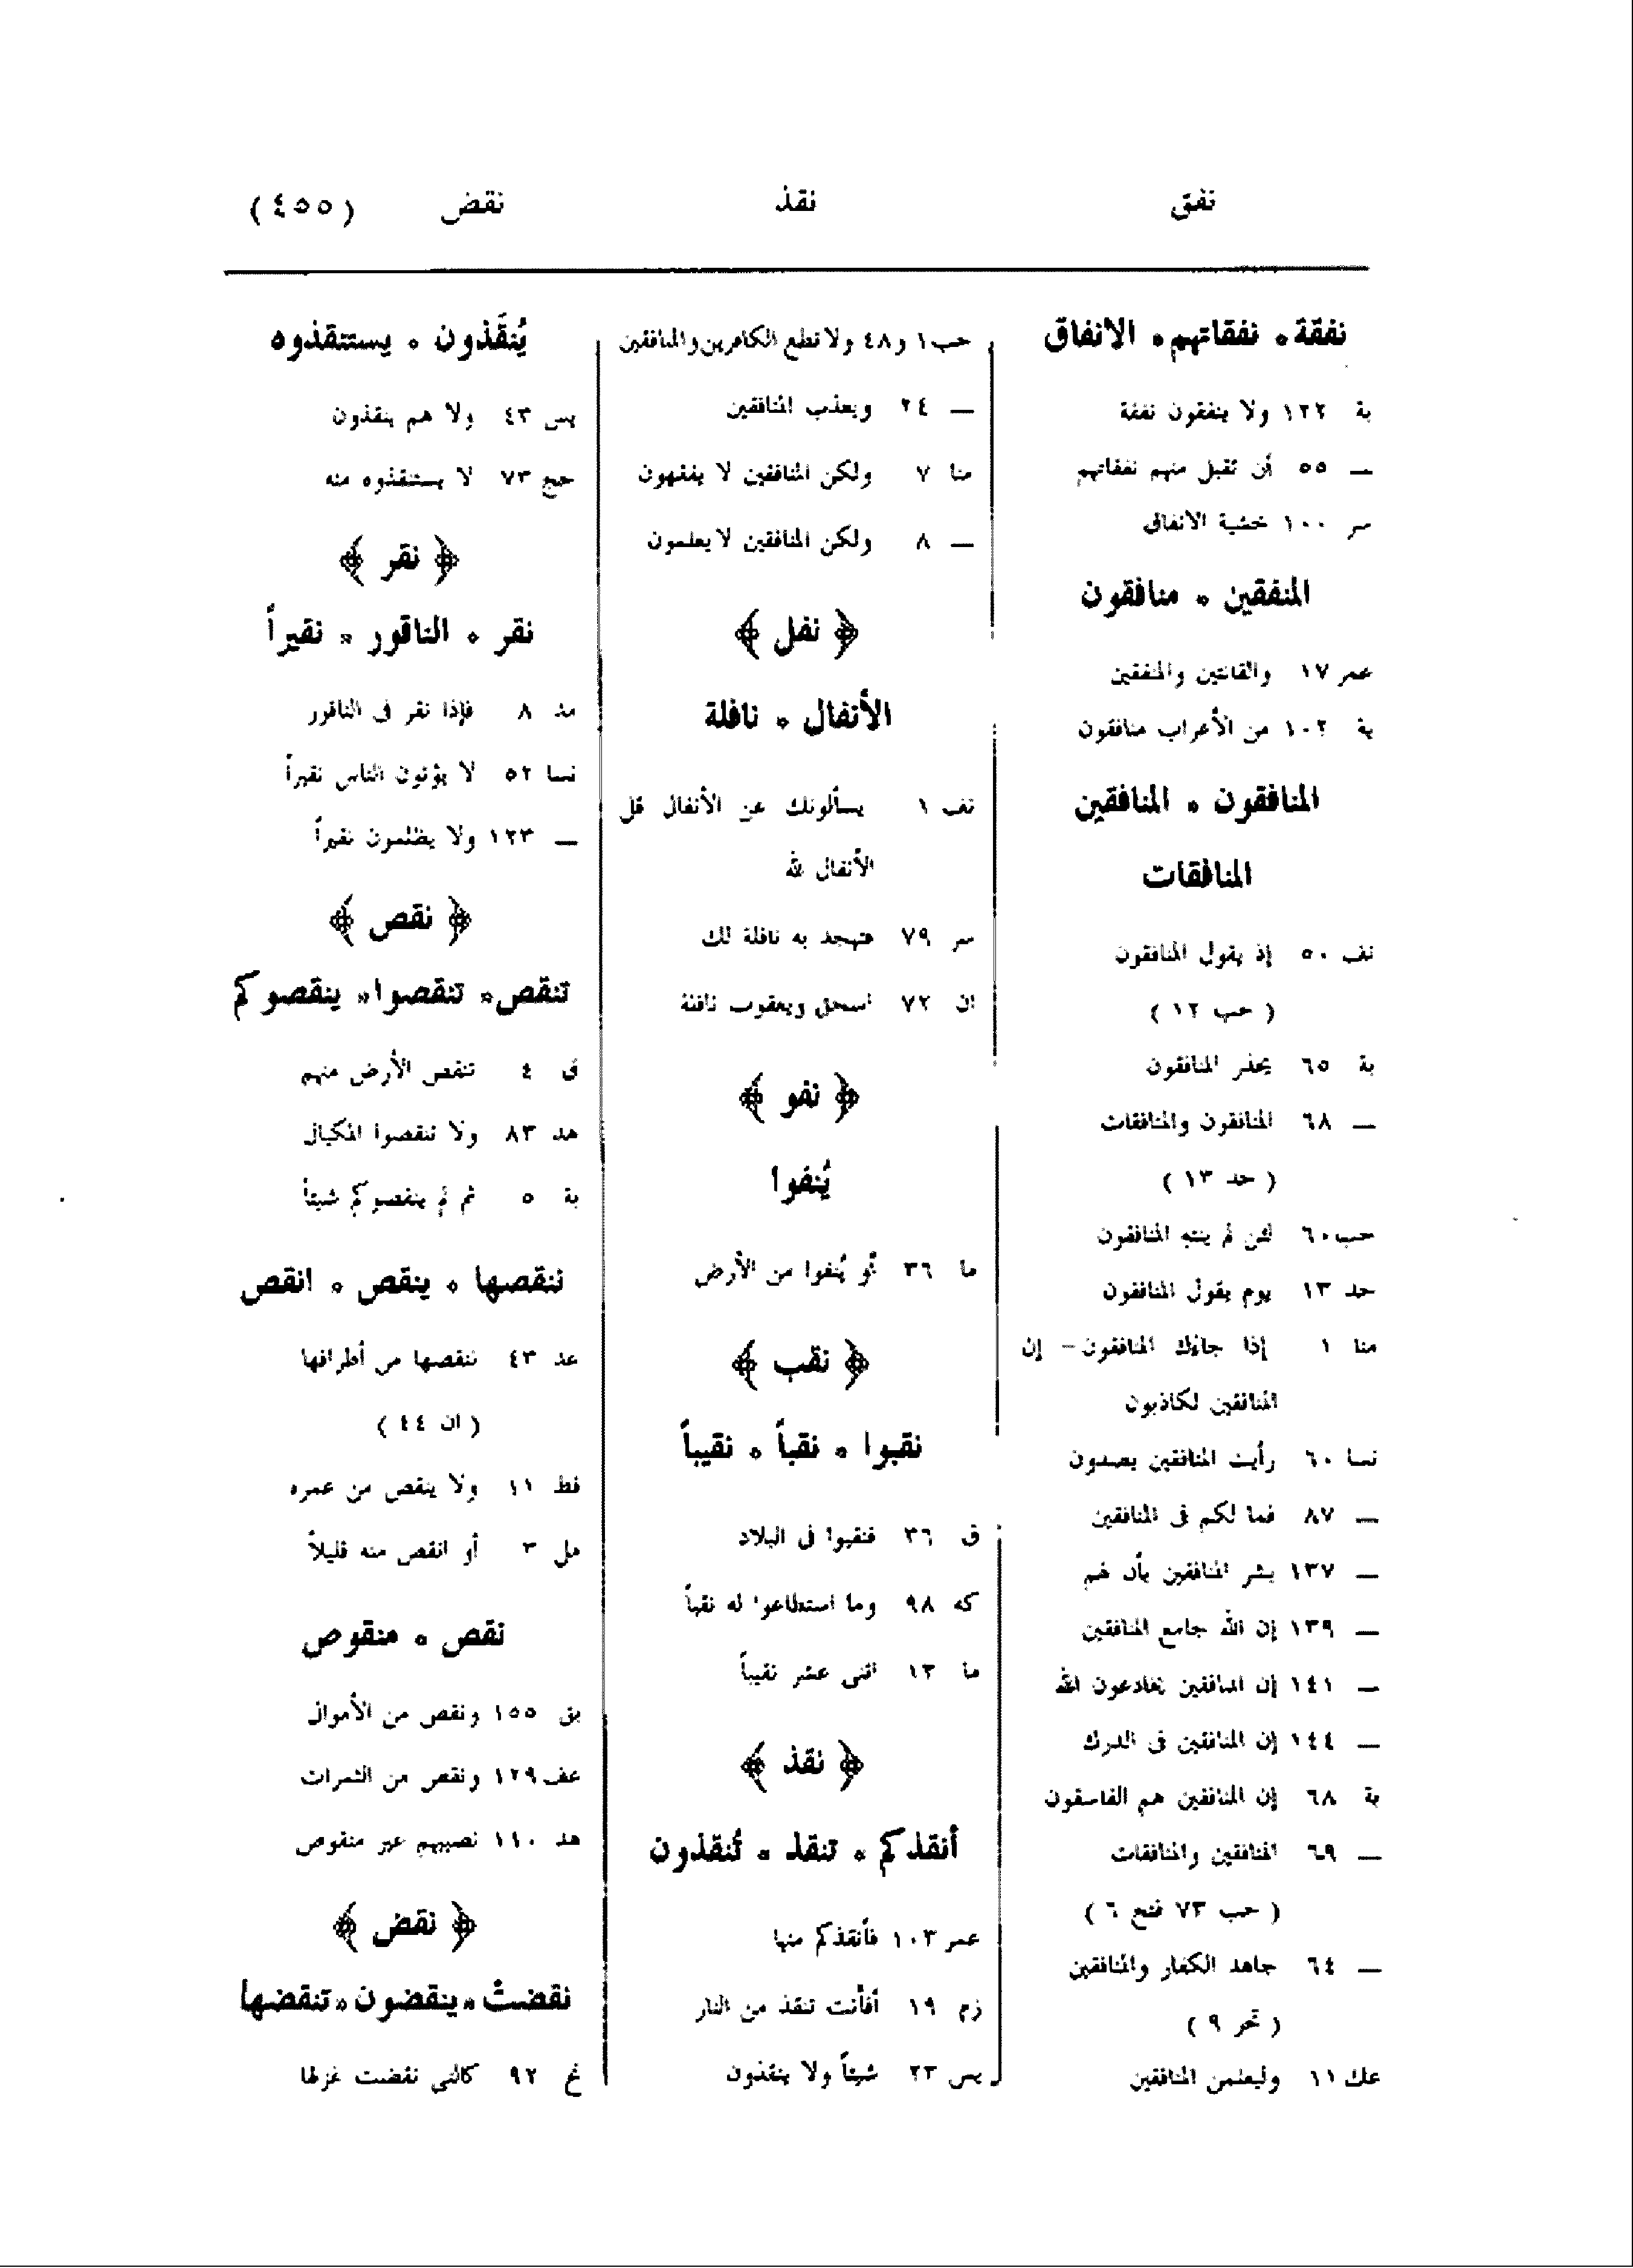 نفق نقذ نقض (٤٥٥)
نفقة ٭ نفقاتهم ٭ الانفاق
بة ١٢٢ ولا ينفقون نفقة
— ٥٥ أن تقبل منهم نفقاتهم
سر ١٠٠ خشية الانفاق
المنفقين ٭ منافقون
عمر ١٧ والقانتين والمنفقين
بة ١٠٢ من الأعراب منافقون
المنافقون ٭ المنافقين
المنافقات
نف ٥٠ إذ يقول المنافقون
( حب ١٢ )
بة ٦٥ يحذر المنافقون
— ٦٨ المنافقون والمنافقات
( حد ١٣ )
حب ٦٠ لئن لم ينته المنافقون
حد ١٣ يوم يقول المنافقون
منا ١ إذا جاءك المنافقون – إن
المنافقين لكاذبون
نسا ٦٠ رأيت المنافقين يصدون
— ٨٧ فما لكم فى المنافقين
— ١٣٧ بشر المنافقين بأن لهم
— ١٣٩ إن الله جامع المنافقين
— ١٤١ إن المنافقين يخادعون الله
— ١٤٤ إن المنافقين فى الدرك
بة ٦٨ إن المنافقين هم الفاسقون
— ٦٩ المنافقين والمنافقات
( حب ٧٣ فتح ٦ )
— ٦٤ جاهد الكفار والمنافقين
( تحر ٩ )
عك ١١ وليعلمن المنافقين
حب ١ و ٤٨ ولا تطع الكافرين والمنافقين
— ٢٤ ويعذب المنافقين
منا ٧ ولكن المنافقين لا يفقهون
— ٨ ولكن المنافقين لا يعلمون
﴿ نفل ﴾
الأنفال ٭ نافلة
نف ١ يسألونك عن الأنفال قل
الأنفال لله
سر ٧٩ فتهجد به نافلة لك
ان ٧٢ اسحق ويعقوب نافلة
﴿ نفو ﴾
يُنفوا
ما ٣٦ أو يُنفوا من الأرض
﴿ نقب ﴾
نقبوا ٭ نقباً ٭ نقيباً
ق ٣٦ فنقبوا فى البلاد
كه ٩٨ وما استطاعوا له نقباً
ما ١٣ اثنى عشر نقيباً
﴿ نقذ ﴾
أنقذكم ٭ تنقذ ٭ تُنقذون
عمر ١٠٣ فأنقذكم منها
زم ١٩ أفأنت تنقذ من النار
يس ٢٣ شيئاً ولا ينقذون
يُنقَذون ٭ يستنقذوه
يس ٤٣ ولا هم ينقذون
حج ٧٣ لا يستنقذوه منه
﴿ نقر ﴾
نقر ٭ الناقور ٭ نقيراً
مد ٨ فإذا نقر فى الناقور
نسا ٥٢ لا يؤتون الناس نقيراً
— ١٢٣ ولا يظلمون نقيراً
﴿ نقص ﴾
تنقص ٭ تنقصوا ٭ ينقصوكم
ق ٤ تنقص الأرض منهم
هد ٨٣ ولا تنقصوا المكيال
بة ٥ ثم لم ينقصوكم شيئاً
ننقصها ٭ ينقص ٭ انقص
عد ٤٣ ننقصها من أطرافها
( ان ٤٤ )
فط ١١ ولا ينقص من عمره
مل ٣ أو انقص منه قليلاً
نقص ٭ منقوص
بق ١٥٥ ونقص من الأموال
عف ١٢٩ ونقص من الثمرات
هد ١١٠ نصيبهم غير منقوص
﴿ نقض ﴾
نقضت ٭ ينقضون ٭ تنقضها
نح ٩٢ كالتى نقضت غزلها